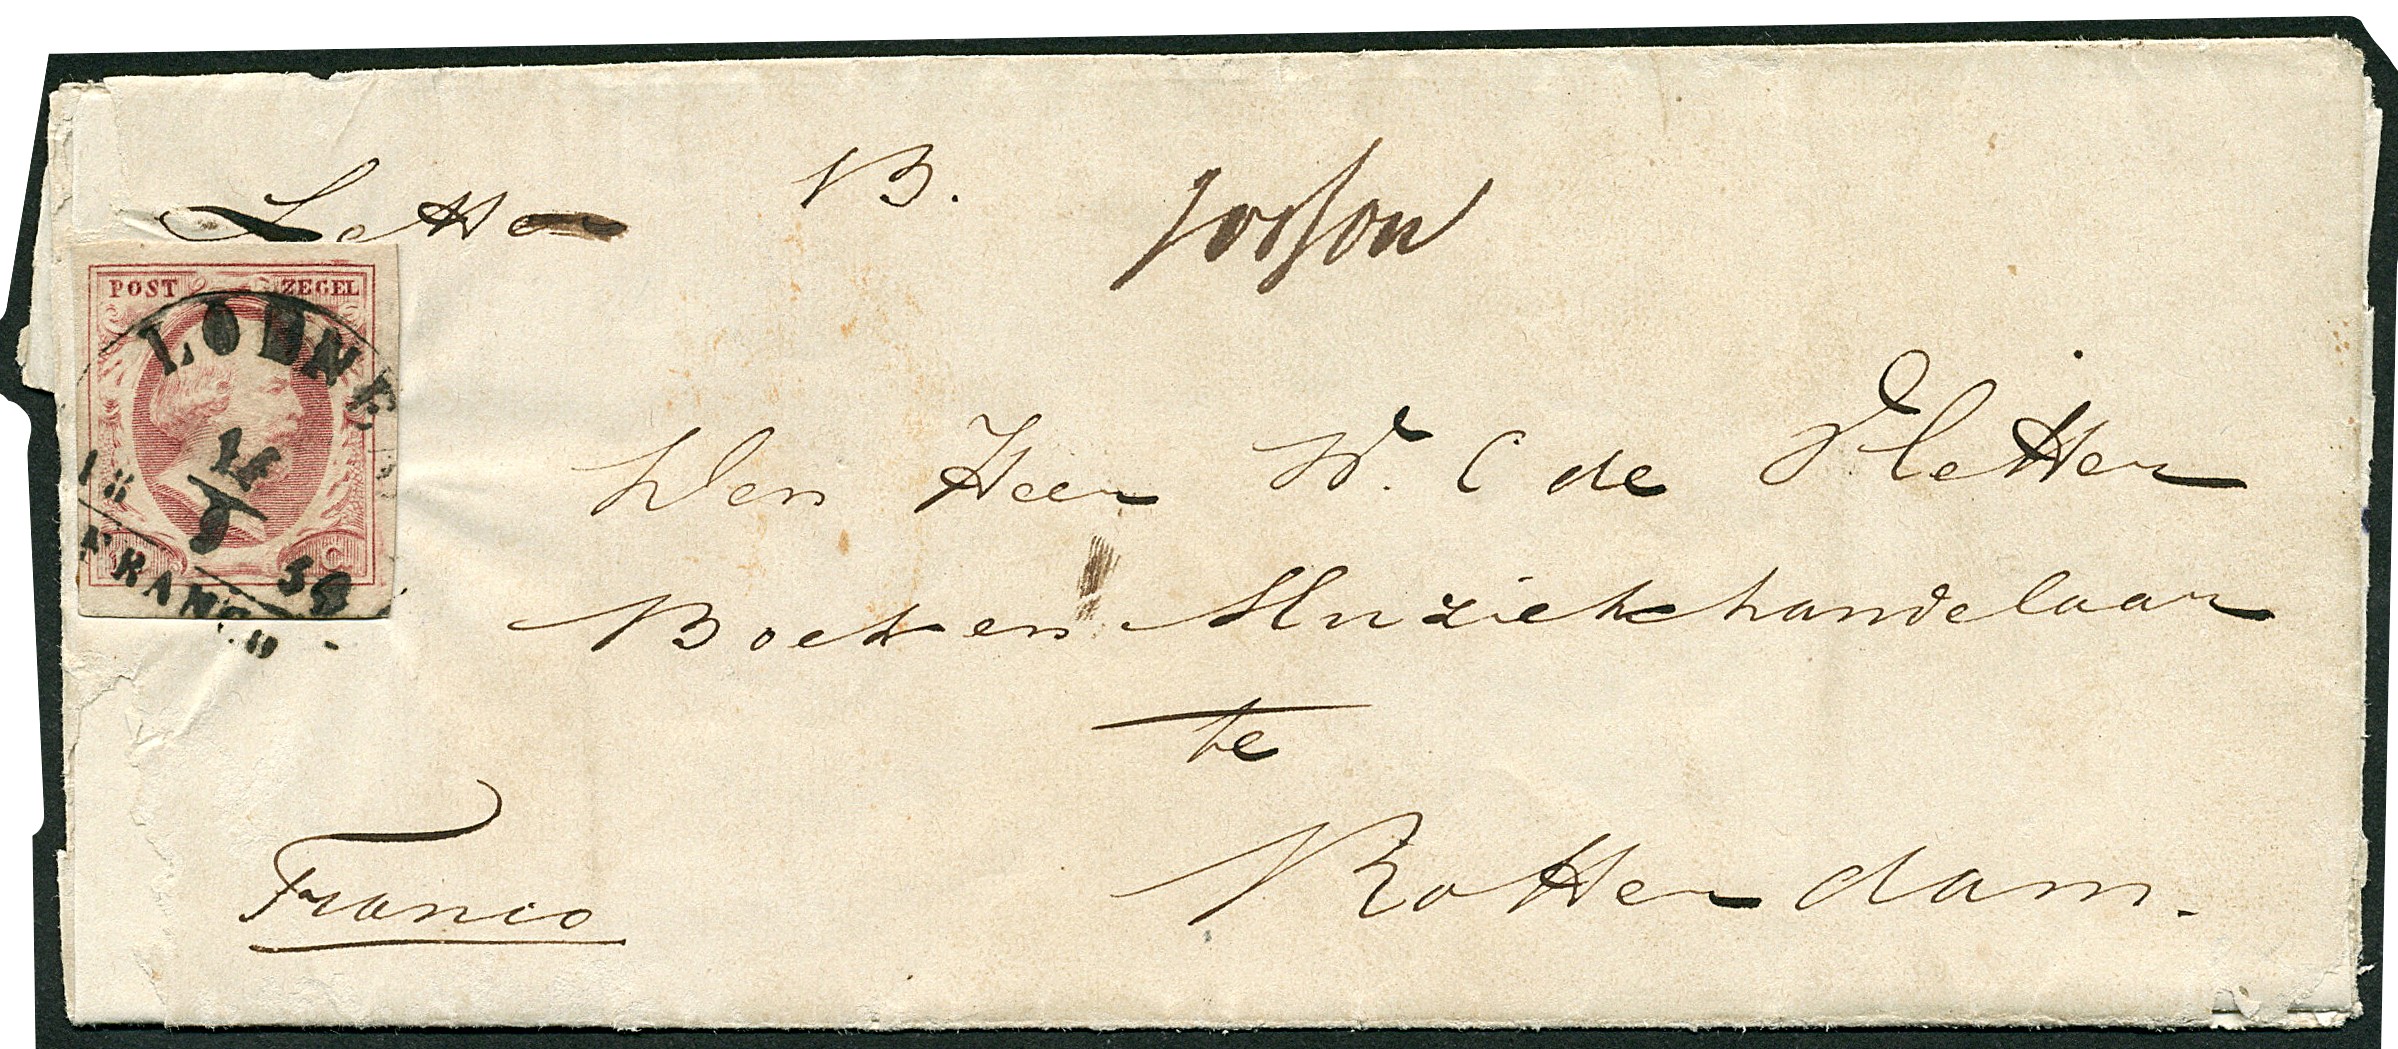 Letter B.
POST ZEGEL
LOENE
14
9
18 59
FRANCO
C
Den Heer W. C de Vletter
Boek en Muziekhandelaar
te
Rotterdam.
Franco